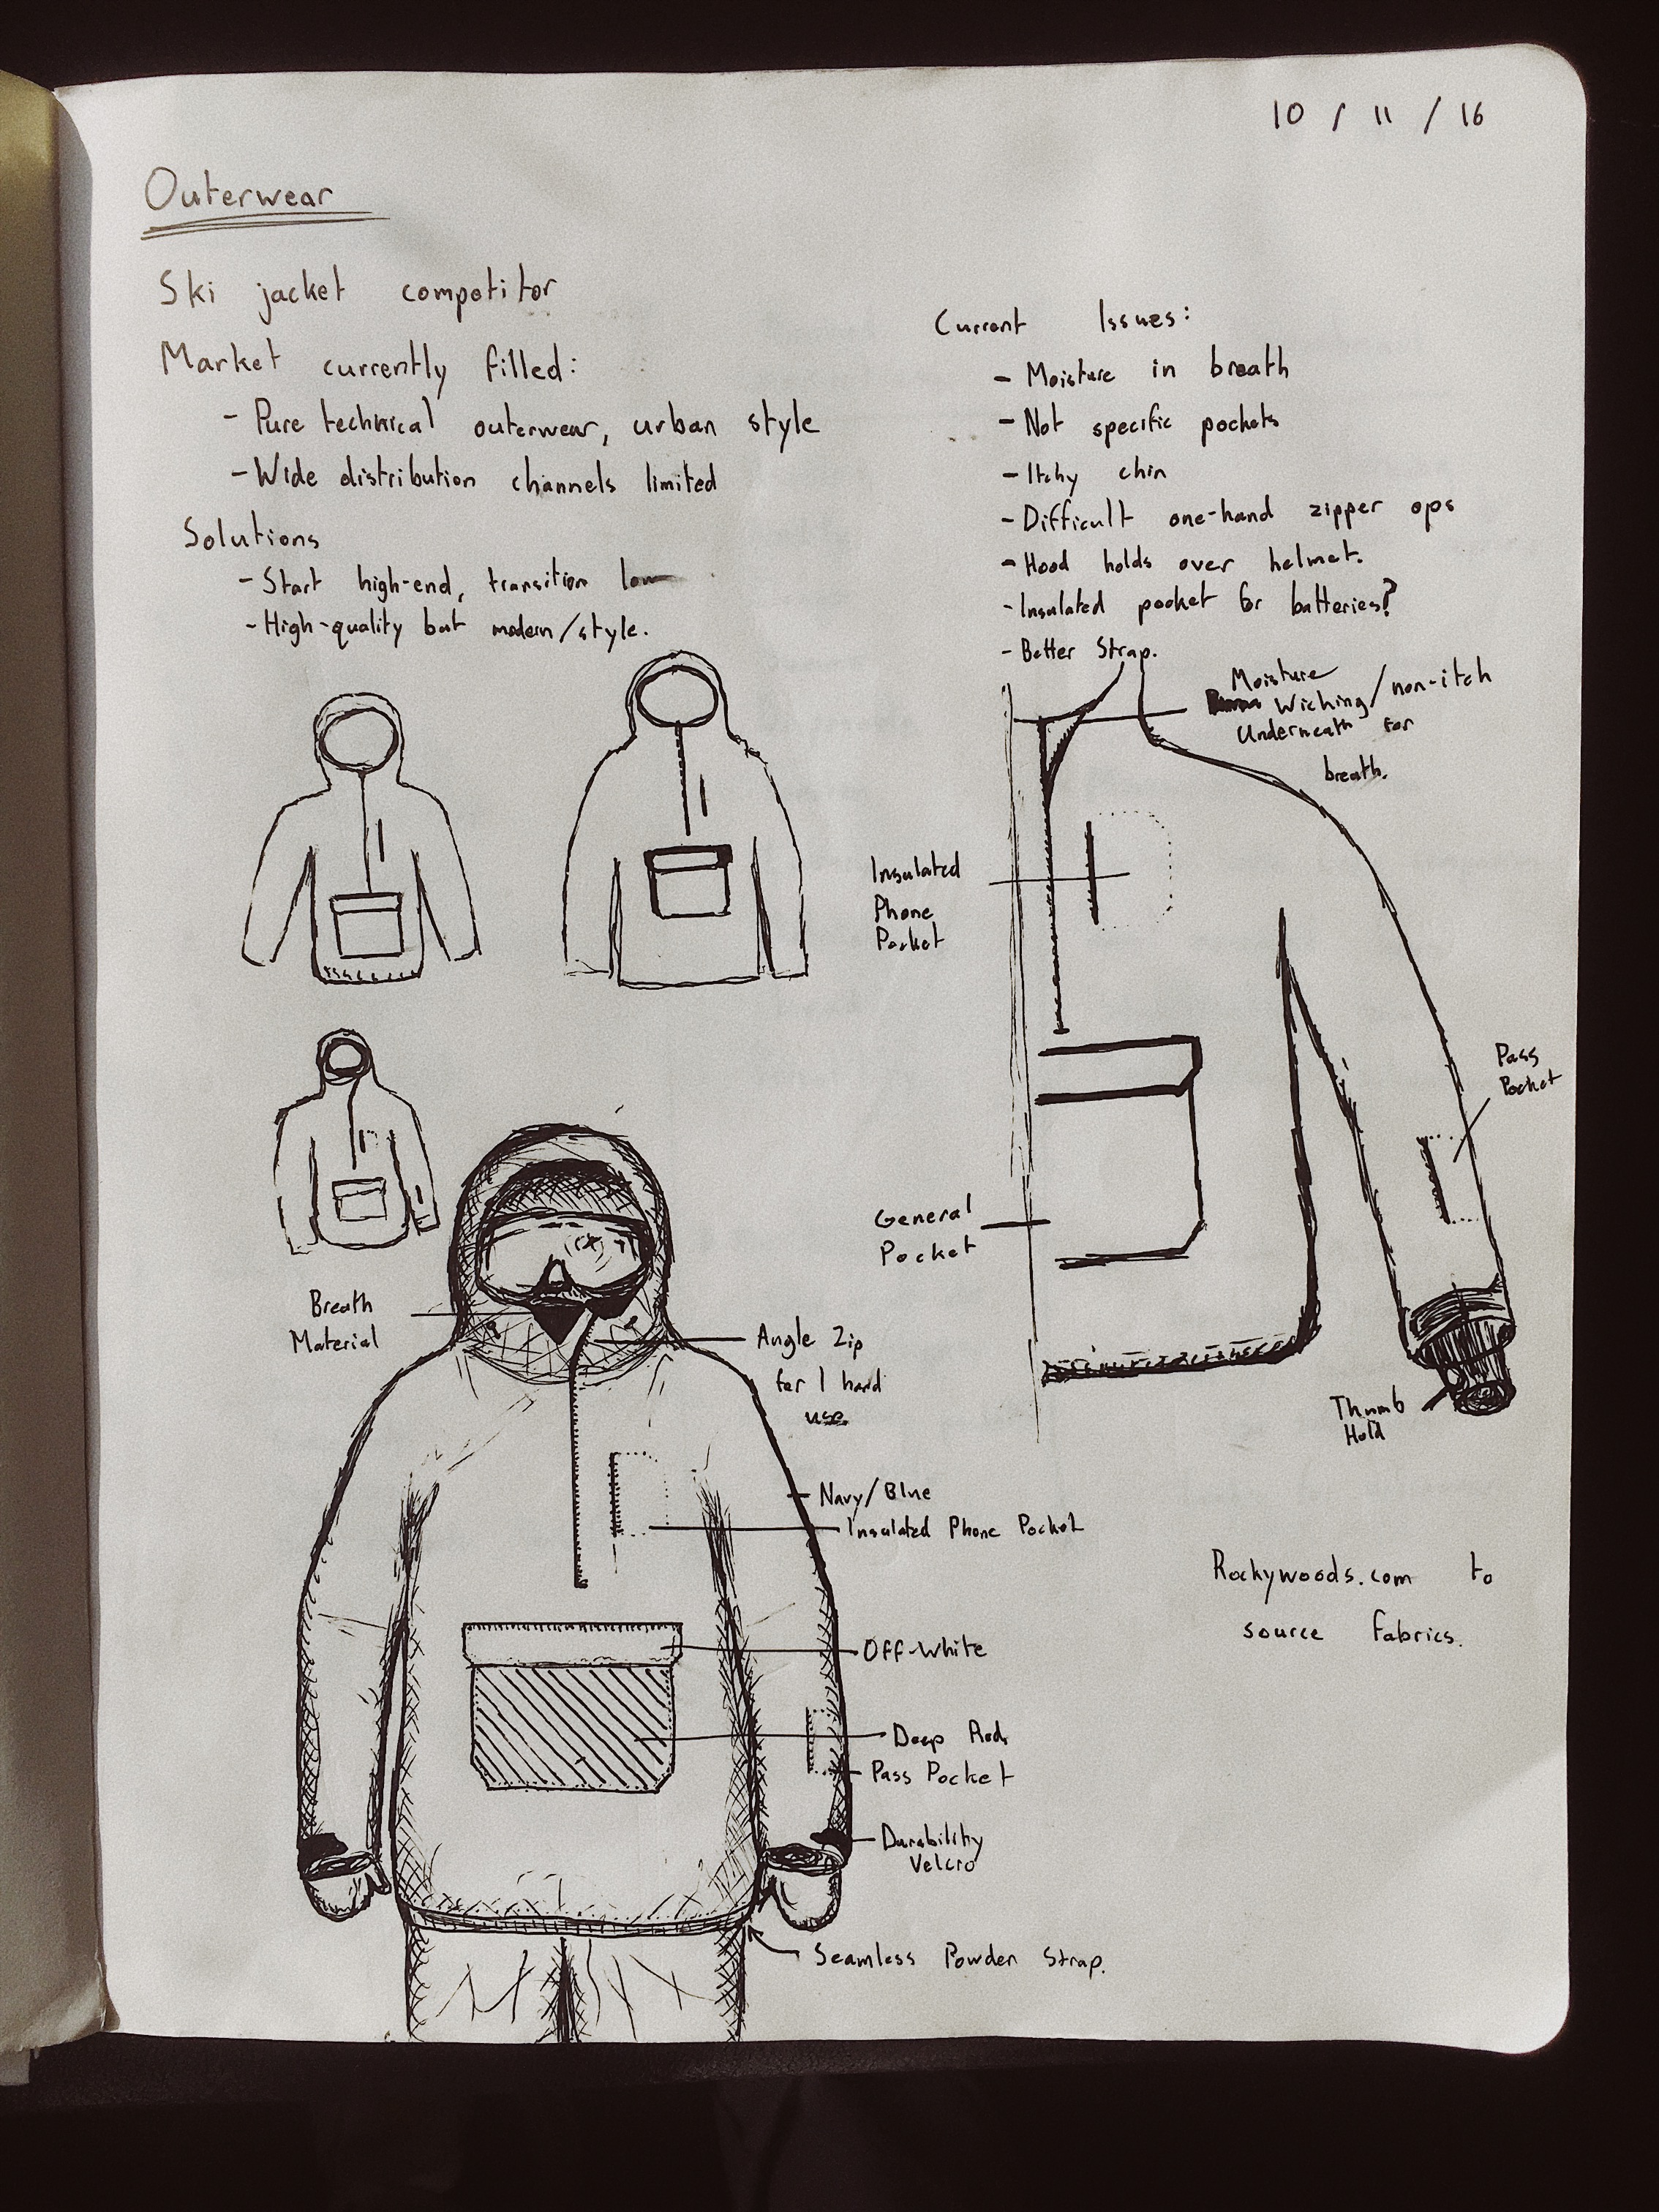 10 / 11 / 16
Outerwear
Ski jacket competitor
Market currently filled:
- Pure technical outerwear, urban style
- Wide distribution channels limited
Solutions
- Start high-end, transition low
- High-quality but modern/style.
Current Issues:
- Moisture in breath
- Not specific pockets
- Itchy chin
- Difficult one-hand zipper ops
- Hood holds over helmet.
- Insulated pocket for batteries?
- Better Strap.
Moisture
Wicking/non-itch
Underneath for
breath.
Insulated
Phone
Pocket
Pass
Pocket
General
Pocket
Thumb
Hold
Breath
Material
Angle Zip
for 1 hand
use
Navy/Blue
Insulated Phone Pocket
Off-White
Deep Red
Pass Pocket
Durability
Velcro
Seamless Powder Strap.
Rockywoods.com to
source fabrics.